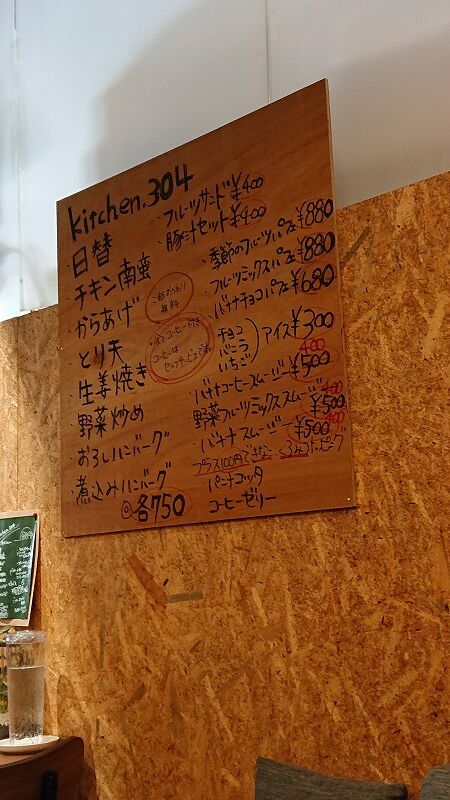 kitchen.304
・日替
・チキン南蛮
・からあげ
・とり天
・生姜焼き
・野菜炒め
・おろしハンバーグ
・煮込みハンバーグ
◎各750
ご飯おかわり
無料
・全てコーヒー付き
コーヒーは
セルフサービスです
・フルーツサンド¥400
・豚汁セット¥400
・季節のフルーツパフェ¥880
・フルーツミックスパフェ¥880
・バナナチョコパフェ¥680
チョコ
バニラ
いちご
アイス¥300
400
・バナナコーヒースムージー¥500
400
野菜フルーツミックススムージー¥500
400
・バナナスムージー¥500
プラス100円できな
くろみつ
トッピング
・パンナコッタ
コーヒーゼリー